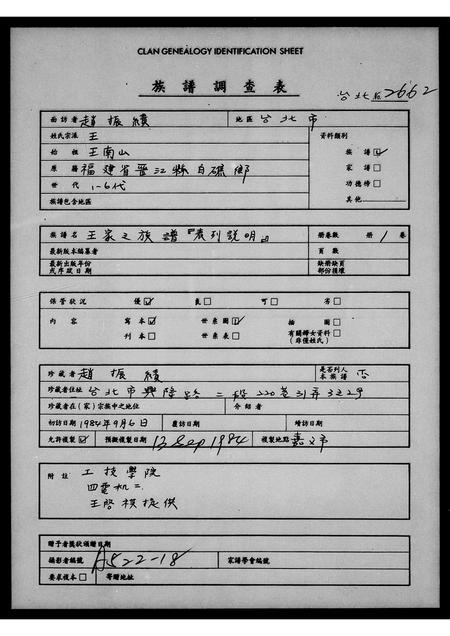 CLAN GENEALOGY IDENTIFICATION SHEET
族譜調查表
台北縣2662
面訪者 趙振績 地區 台北市
姓氏宗派 王 資料類別
始祖 王南山 族譜☑
原籍 福建省晋江縣白礁鄉 家譜□
世代 1-6代 功德榜□
族譜包含地區 其他
族譜名 王家之族譜『表列說明』 冊卷數 冊 1 卷
最新版本編纂者 頁數
最新出版年份 缺冊缺頁
或序跋日期 部份損壞
保管狀況 優☑ 良□ 可□ 劣□
內容 寫本☑ 世系圖☑ 插圖□
刊本□ 世系表□ 有關婦女資料□
(非僅姓氏)
珍藏者 趙振績 是否列入本族譜 否
珍藏者住址 台北市興隆路二段220巷31弄3之2号
珍藏者在(家)宗族中之地位 介紹者
初訪日期 1984年9月6日 覆訪日期 續訪日期
允許複製☑ 預擬複製日期 13 Sep 1984 複製地點 嘉义市
附註 工技學院
四電机二
王啓祺提供
贈予者獎狀頒贈日期
攝影者編號 A522-18 家譜學會編號
要求複本□ 寄贈地址